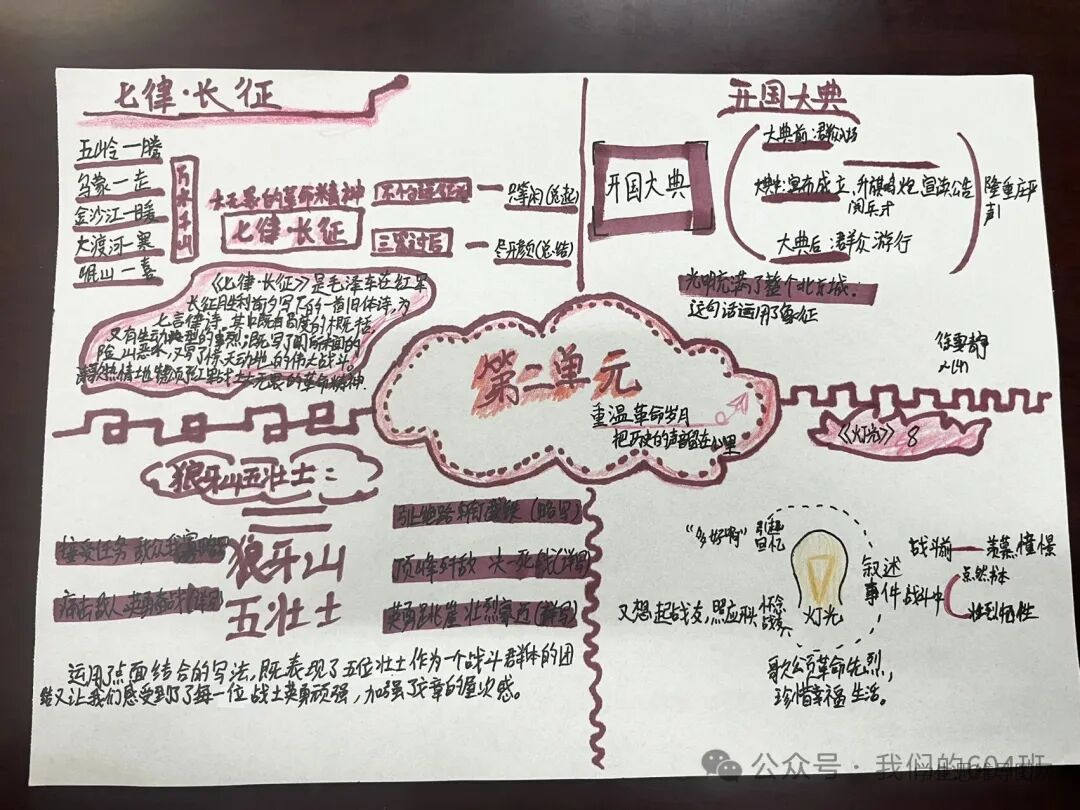 七律·长征
五岭一腾
乌蒙一走
金沙江一暖
大渡河一寒
岷山一喜
万水千山
大无畏的革命精神
七律·长征
不怕远征难
三军过后
只等闲(总起)
尽开颜(总结)
《七律·长征》是毛泽东在红军
长征胜利前夕写下的一首旧体诗,为
七言律诗,其中既有高度的概括
又有生动典型的事例;既写了
险山恶水,又写了惊天动地的伟大战斗。
大无畏的革命精神.
开国大典
开国大典
大典前:群众入场
大典中:宣布成立、升旗鸣炮、宣读公告
阅兵式
大典后:群众游行
隆重庄严
光明充满了整个北京城.
这句话运用了象征
第二单元
重温革命岁月
把历史的声音留在心里
狼牙山五壮士:
狼牙山
五壮士
接受任务
痛击敌人 英勇奋战(详写)
引上绝路 (略写)
顶峰歼敌
英勇跳崖 壮烈豪迈(详写)
运用了点面结合的写法,既表现了五位壮士作为一个战斗群体的团
结又让我们感受到了每一位战士英勇顽强,加强了文章的层次感。
《灯光》 8
“多好啊”
引起
回忆
灯光
叙述
事件
战斗前
羡慕憧憬
战斗中
点燃书本
壮烈牺牲
又想起战友,照应开头
怀念
战友
歌公页革命先烈,
珍惜幸福生活。
公众号·我们的604班